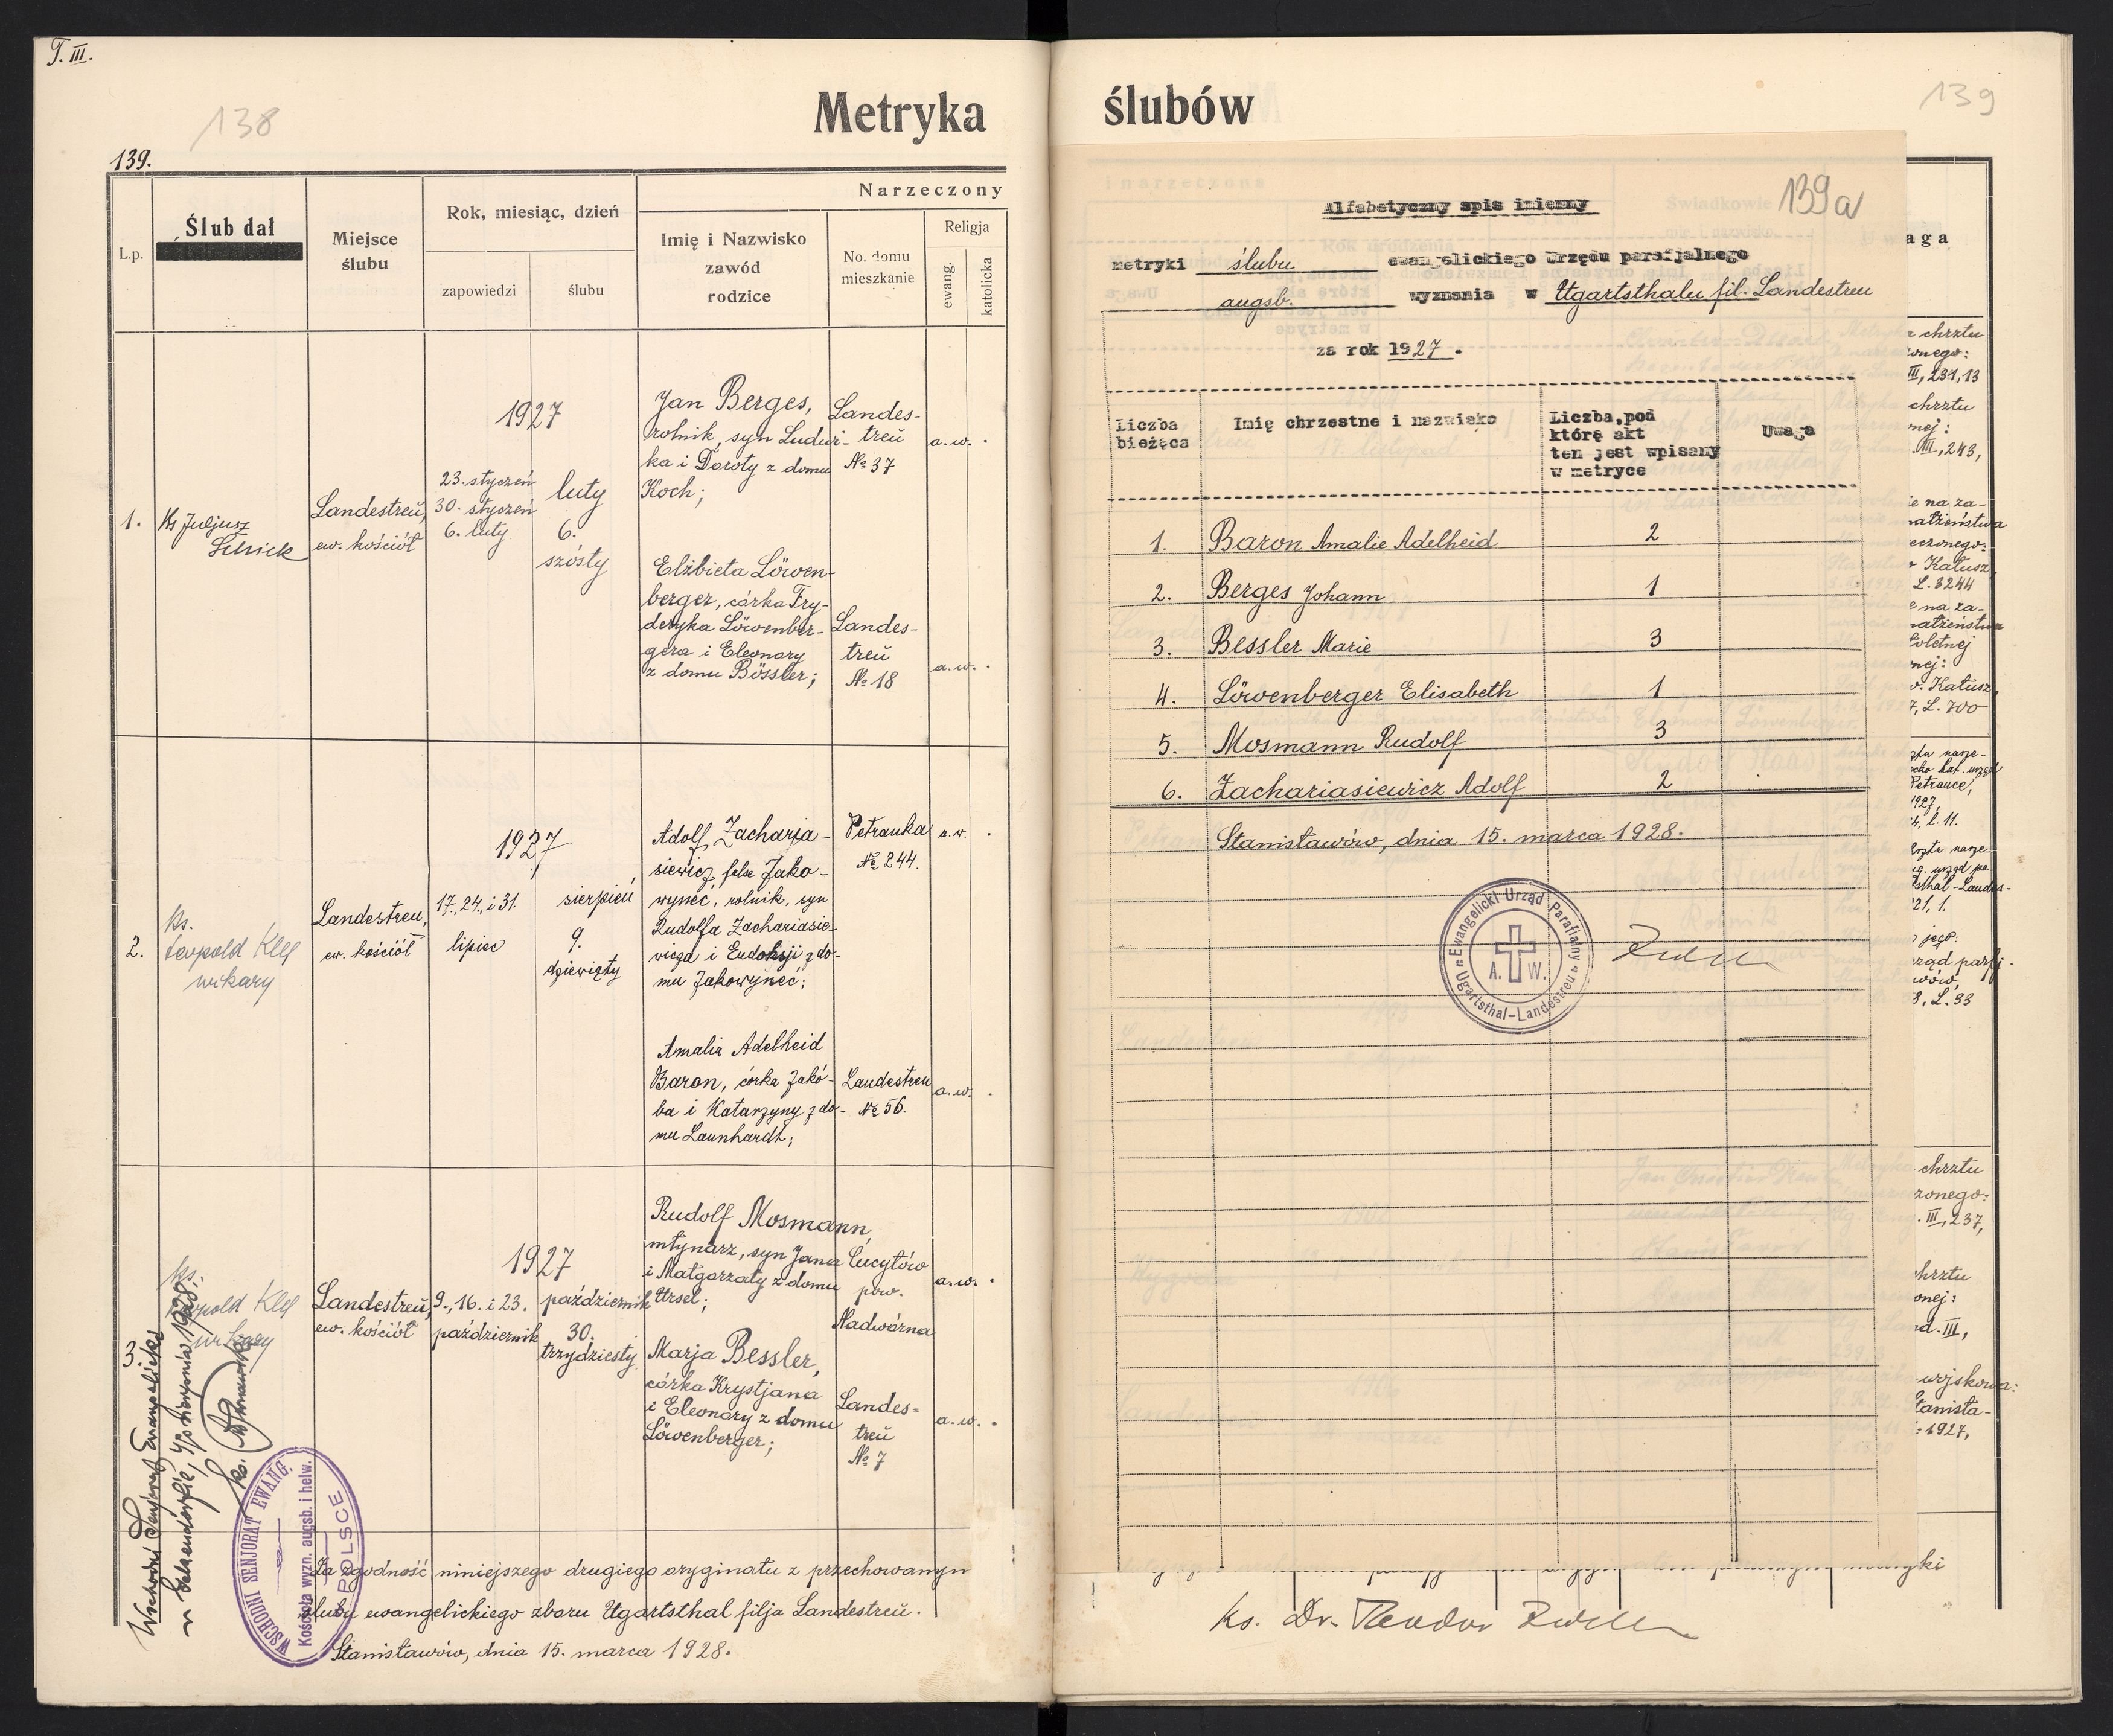 T. III.
138
Metryka
139.
Narzeczony
L.p.
Ślub dał
Miejsce
ślubu
Rok, miesiąc, dzień
zapowiedzi
ślubu
Imię i Nazwisko
zawód
rodzice
No. domu
mieszkanie
Religja
ewang.
katolicka
1.
Ks Juljusz
Landestreü,
ew. kościół
1927
23. styczeń
30. styczeń
6. luty
luty
6.
szósty
Jan Berges,
rolnik, syn Ludwi-
ka i Doroty z domu
Koch;
Landes-
treü
№ 37
a.w.
Elżbieta Löwen-
berger, córka Fry-
deryka Löwenber-
gera i Eleonory
z domu Bössler;
Landes-
treü
№ 18
a.w.
2.
ks.
Leopold Klee
wikary
Landestreu,
ew. kościół
1927
17., 24., i 31.
lipiec
sierpień
9.
dziewiąty
Adolf Zacharja-
siewicz false Jako-
wyneć, rolnik, syn
Rudolfa Zachariasie-
wicza i Eudoksji z do-
mu Jakowyneć;
Petranka
№ 244.
a.w.
Amalia Adelheid
Baron, córka Jakó-
ba i Katarzyny z do-
mu Launhardt;
Landestreu
№ 56.
a.w.
3.
ks.
Leopold Klee
wikary
Landestreü,
ew. kościół
1927
9., 16. i 23.
październik
październik
30.
trzydziesty
Rudolf Mosmann,
młynarz, syn Jana
i Małgorzaty z domu
Ursel;
Cucyłów
pow.
Nadwórna
a.w.
Marja Bessler,
córka Krystjana
i Eleonory z domu
Löwenberger;
Landes-
treü
№ 7
a.w.
Wschodni Senjorat Ewangelicki
WSCHODNI SENJORAT EWANG.
Kościoła wyzn. augsb. i helw.
w POLSCE
Za zgodność niniejszego drugiego oryginału z przechowanym
ślubu ewangelickiego zboru Ugartsthal filja Landestreü.
Stanisławów, dnia 15. marca 1928.
ślubów
139
139a
Alfabetyczny spis imienny
metryki ślubu ewangelickiego Urzędu parafjalnego
augsb. wyznania w Ugartsthalu fil. Landestreu
za rok 1927.
Liczba
bieżąca
Imię chrzestne i nazwisko
Liczba, pod
którą akt
ten jest wpisany
w metryce
Uwaga
1. Baron Amalie Adelheid 2
2. Berges Johann 1
3. Bessler Marie 3
4. Löwenberger Elisabeth 1
5. Mosmann Rudolf 3
6. Zachariasiewicz Adolf 2
Stanisławów, dnia 15. marca 1928.
Ewangelicki Urząd Parafialny
A. W.
Ugartsthal-Landestreu
aga
chrztu
III, 231, 13
chrztu
III, 243,
Kałusz,
L. 3244
Kałusz,
L. 700
chrztu
III, 237,
III,
1927,
metryki
ks. Dr. Teodor